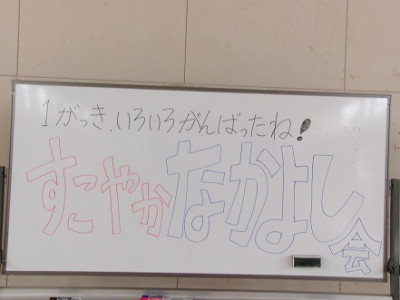 1がっき、いろいろがんばったね!
すこやかなかよし会